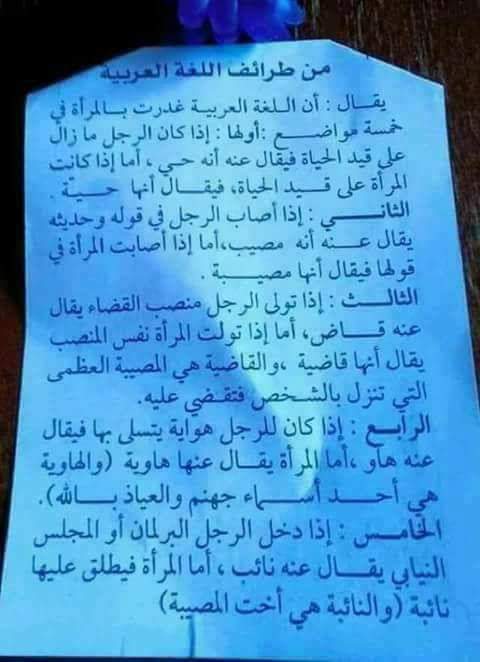 من طرائف اللغة العربية
يقال : أن اللغة العربية غدرت بالمرأة في
خمسة مواضع :أولها : إذا كان الرجل ما زال
على قيد الحياة فيقال عنه أنه حي ، أما إذا كانت
المرأة على قيد الحياة، فيقال أنها حية .
الثاني : إذا أصاب الرجل في قوله وحديثه
يقال عنه أنه مصيب،أما إذا أصابت المرأة في
قولها فيقال أنها مصيبة .
الثالث : إذا تولى الرجل منصب القضاء يقال
عنه قاض، أما إذا تولت المرأة نفس المنصب
يقال أنها قاضية ،والقاضية هي المصيبة العظمى
التي تنزل بالشخص فتقضي عليه.
الرابع : إذا كان للرجل هواية يتسلى بها فيقال
عنه هاو ،أما المرأة يقال عنها هاوية (والهاوية
هي أحد أسماء جهنم والعياذ بالله).
الخامس : إذا دخل الرجل البرلمان أو المجلس
النيابي يقال عنه نائب ، أما المرأة فيطلق عليها
نائبة (والنائبة هي أخت المصيبة)